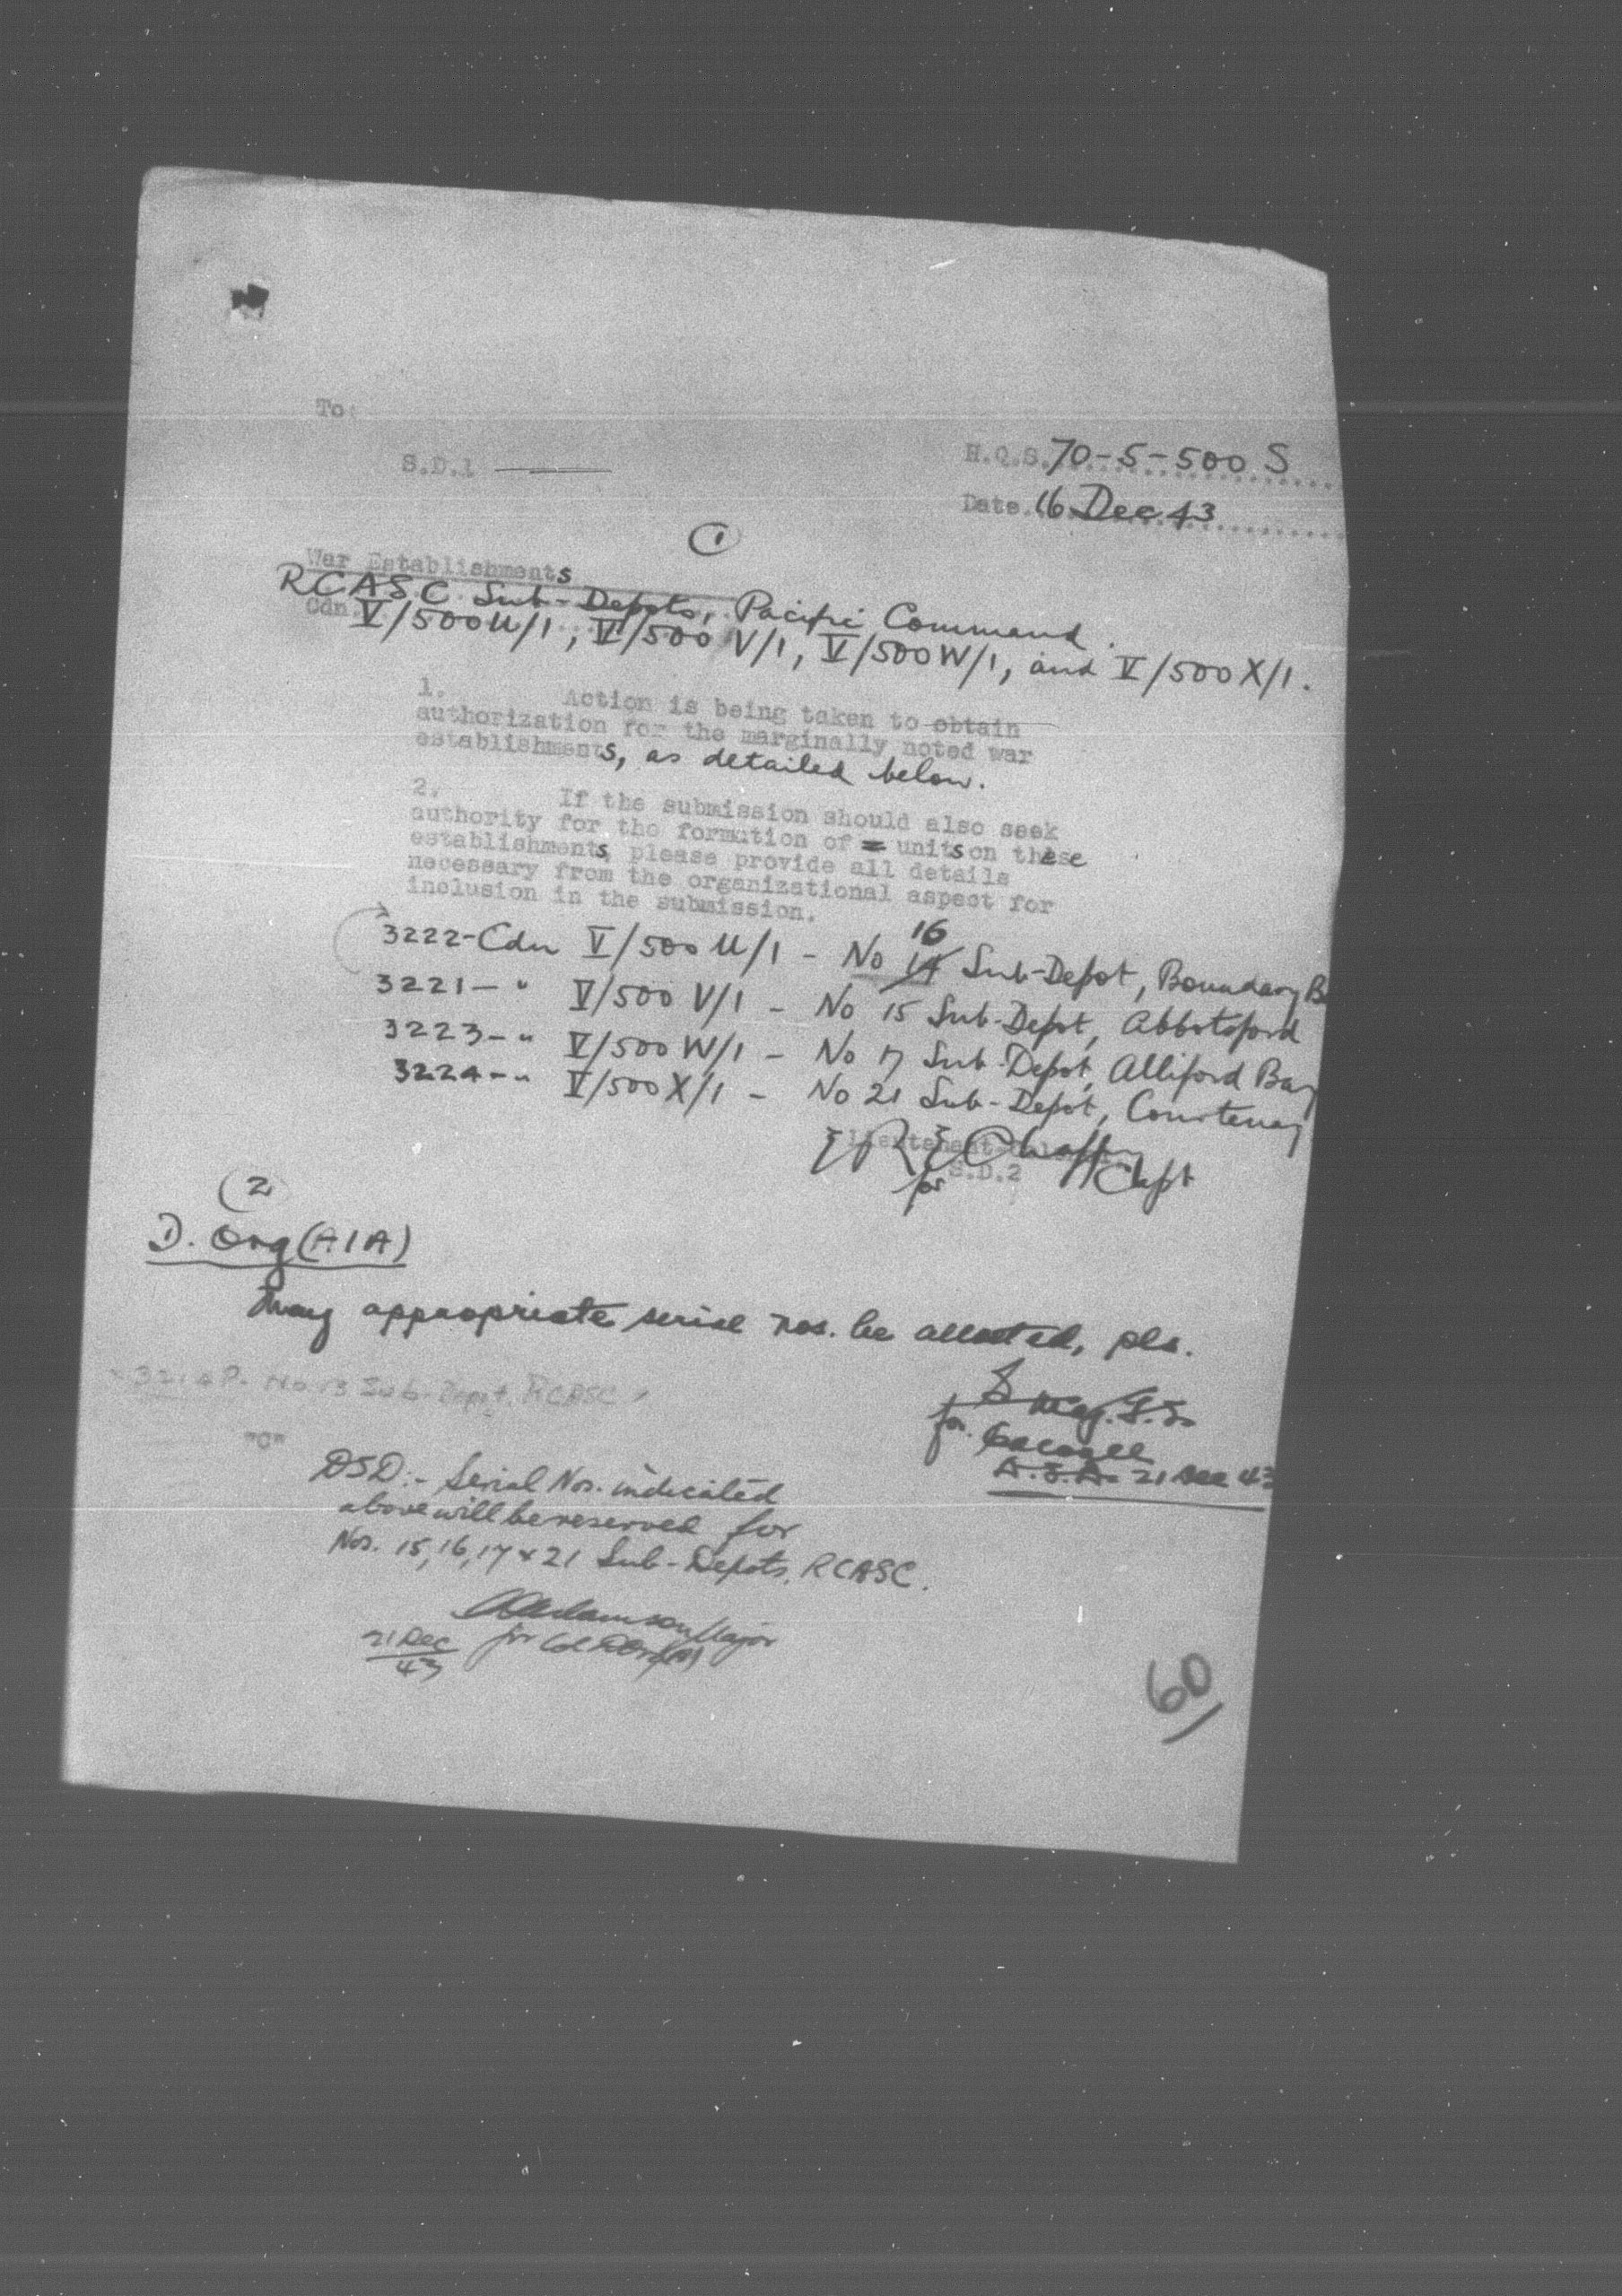 To:
S.D.1
H.Q.S. 70-5-500 S
Date 16 Dec 43
1
War Establishments
RCASC Sub-Depots, Pacific Command.
Cdn. V/500U/1, V/500 V/1, V/500W/1, and V/500 X/1.
1. Action is being taken to obtain
authorization for the marginally noted war
establishments, as detailed below.
2. If the submission should also seek
authority for the formation of units on these
establishments, please provide all details
necessary from the organizational aspect for
inclusion in the submission.
16
3222-Cdn V/500 U/1 - No 14 Sub-Depot, Boundary B
3221- " V/500 V/1 - No 15 Sub-Depot, Abbotsford
3223- " V/500 W/1 - No 17 Sub-Depot, Alliford Bay
3224- " V/500 X/1 - No 21 Sub-Depot, Courtenay
Lieutenant
Capt
for S.D.2
2
D. Org (A1A)
May appropriate serial nos. be allotted, pls.
No 13 Sub-Depot, RCASC
for Colonel
21 Dec 43
"C"
DSD:- Serial Nos. indicated
above will be reserved for
Nos. 15, 16, 17 & 21 Sub-Depots, RCASC.
Major
21 Dec for Col
43
60